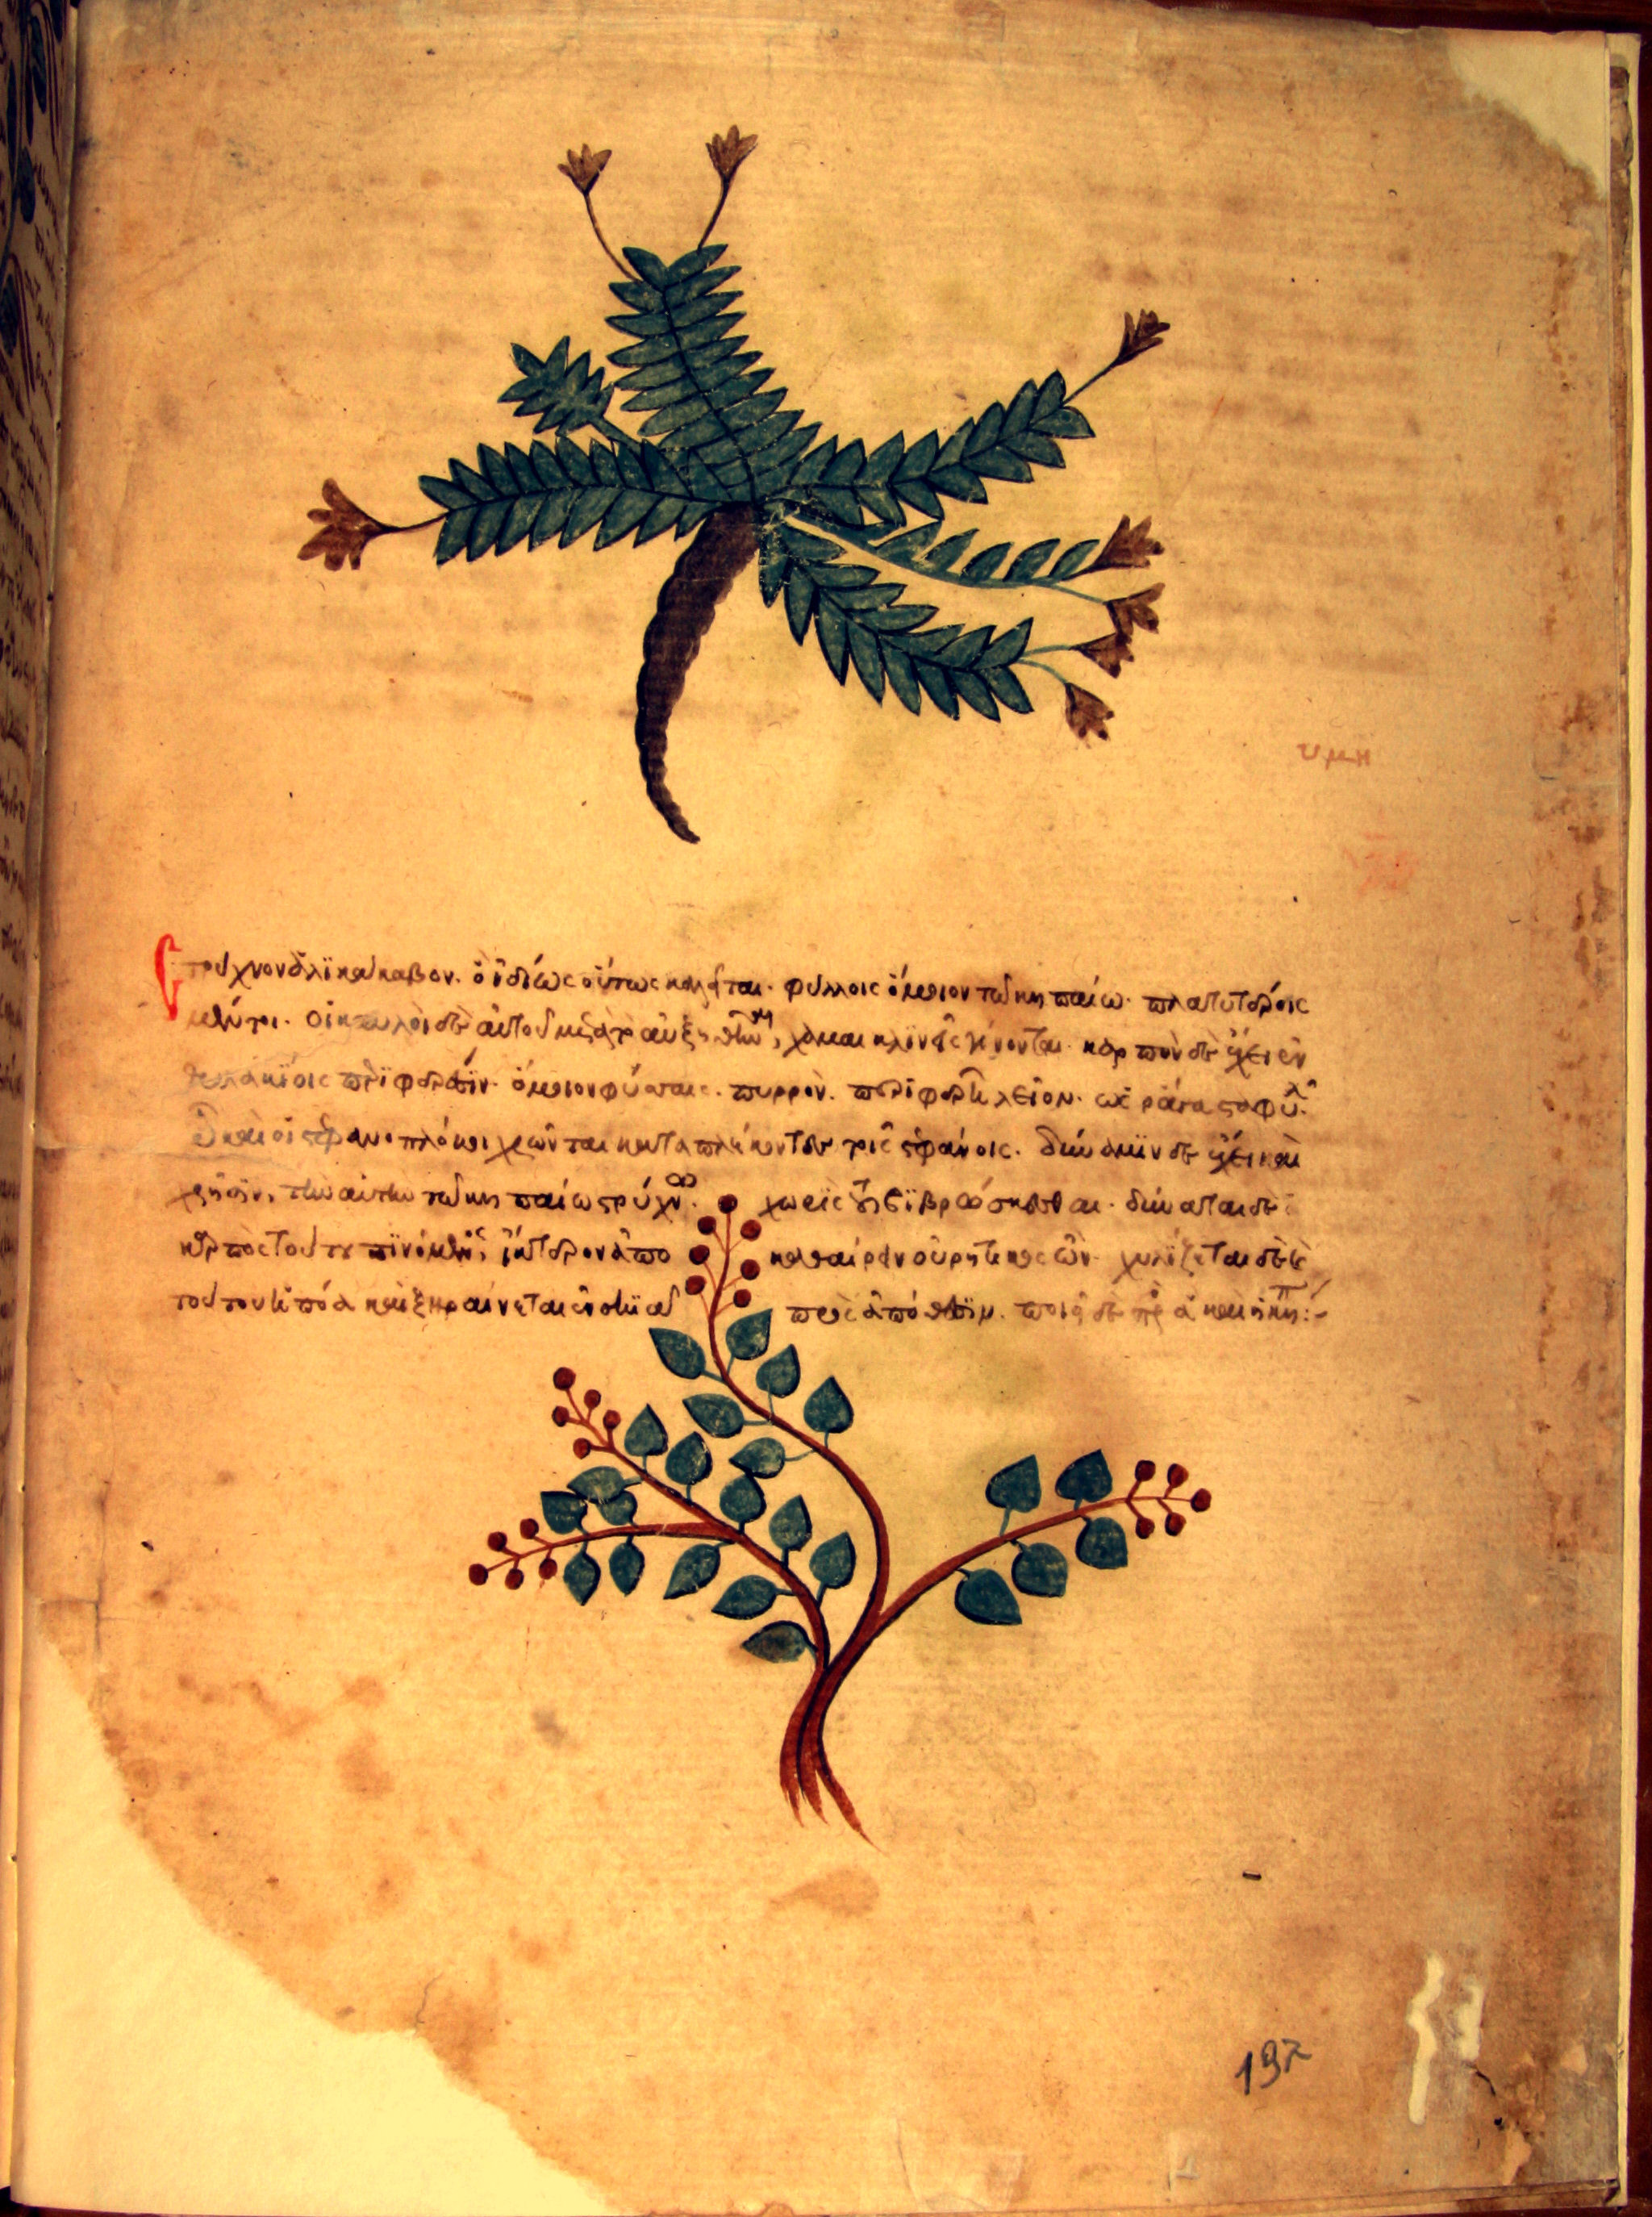 υμη
στρύχνον ἁλικάκαβον. ὃ ἰδίως οὕτως καλεῖται. φύλλοις ὅμοιον τῶ κηπαίω. πλατυτέροις
μέντοι. οἱ καυλοὶ δὲ αὐτοῦ μετὰ τὸ αὐξηθῆναι, χαμαὶ κλινεῖς γίνονται. καρπὸν δὲ ἔχει ἐν
θυλακίοις περιφερέσιν. ὅμοιον φύσαις. πυρρόν. περιφερῆ λεῖον. ὡς ῥάγα σταφυλ
ῶ καὶ οἱ στεφανοπλόκοι χρῶνται καταπλέκοντες τοὺς στεφάνους. δύναμιν δὲ ἔχει καὶ
χρῆσιν, τὴν αὐτὴν τῶ κηπαίω στρύχνω. χωρὶς τοῦ βιβρώσκεσθαι. δύναται δὲ ὁ
καρπὸς τοῦ πινόμενος, ἴκτερον ἀπο καθαίρειν οὐρητικὸς ὤν. χυλίζεται δὲ
καὶ ξηραίνεται ἐν σκιᾶ ἀποθε ποιεῖ δὲ πρὸς
197